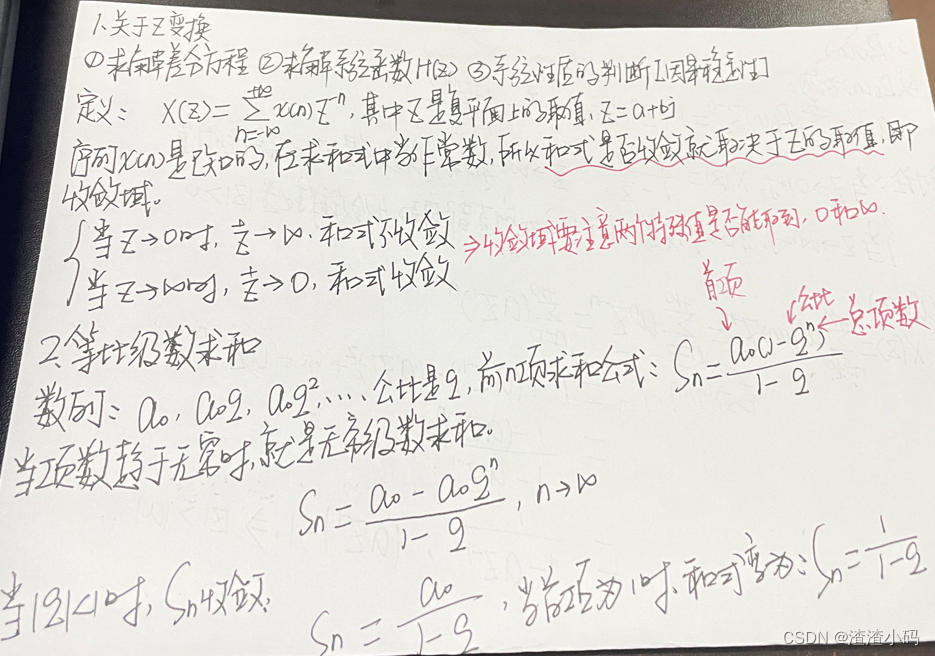 1.关于Z变换
①求解差分方程 ②求解系统函数H(z) ③系统性质的判断[因果稳定性]
定义: X(z)=∑_{n=-∞}^{+∞} x(n)z^{-n}, 其中z是复平面上的取值, z=a+bj
序列x(n)是已知的, 在求和式中当作常数, 所以和式是否收敛就取决于z的取值, 即
收敛域。
当z→0时, 1/z→∞, 和式不收敛
⇒收敛域要注意两个特殊值是否能取到, 0和∞.
当z→∞时, 1/z→0, 和式收敛
首项
公比
总项数
2.等比级数求和
数列: a₀, a₀q, a₀q², .... 公比是q, 前n项求和公式: Sn=a₀(1-qⁿ)/(1-q)
当项数趋于无穷时, 就是无穷级数求和。
Sn=(a₀-a₀qⁿ)/(1-q), n→∞
当|q|<1时, Sn收敛,
Sn=a₀/(1-q), 当首项为1时, 和式变为: Sn=1/(1-q)
CSDN @渣渣小码